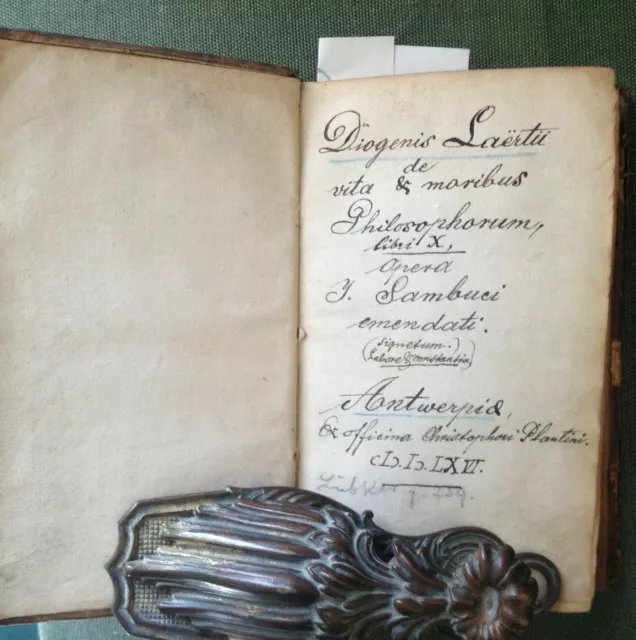 Diogenis Laërtii
de
vita & moribus
Philosophorum,
libri X,
opera
J. Sambuci
emendati.
(Signetum.)
(Labore & constantia)
Antwerpiæ,
Ex officina Christophori Plantini.
cIɔ.Iɔ.LXVI.
Lübker p. 239.